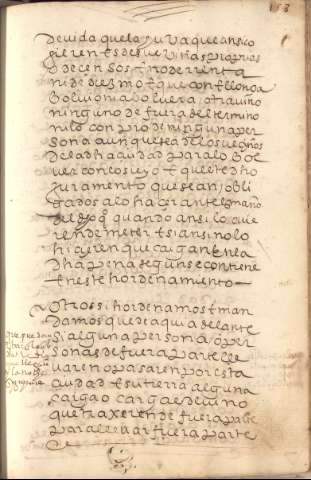 153
de vida que la su uva que ansi co
gieren es de sus viñas propias
o de censos e no de rrenta
ni de diezmo e que con ello no a
bolvido ni a de bolver a otro vino
ninguno de fuera del termino
ni lo conpro de ninguna per
sona aunque sea de los vezinos
de la dha çiudad para lo bol
ver con lo suyo e que este dho
juramento que sean obli
gados a lo hazer ante
del dho quando ansi lo qui
eren de meter e si ansi no lo
hizieren que caigan en la
dha pena segun se contiene
en este hordenamiento
Otrossi hordenamos e man
damos que de aqui adelante
si alguna persona o per
sonas de fuera parte lle
varen o pasaren por esta
çiudad e su tierra alguna
carga o cargas de vino
que traxeren de fuera parte
para llevar fuera parte